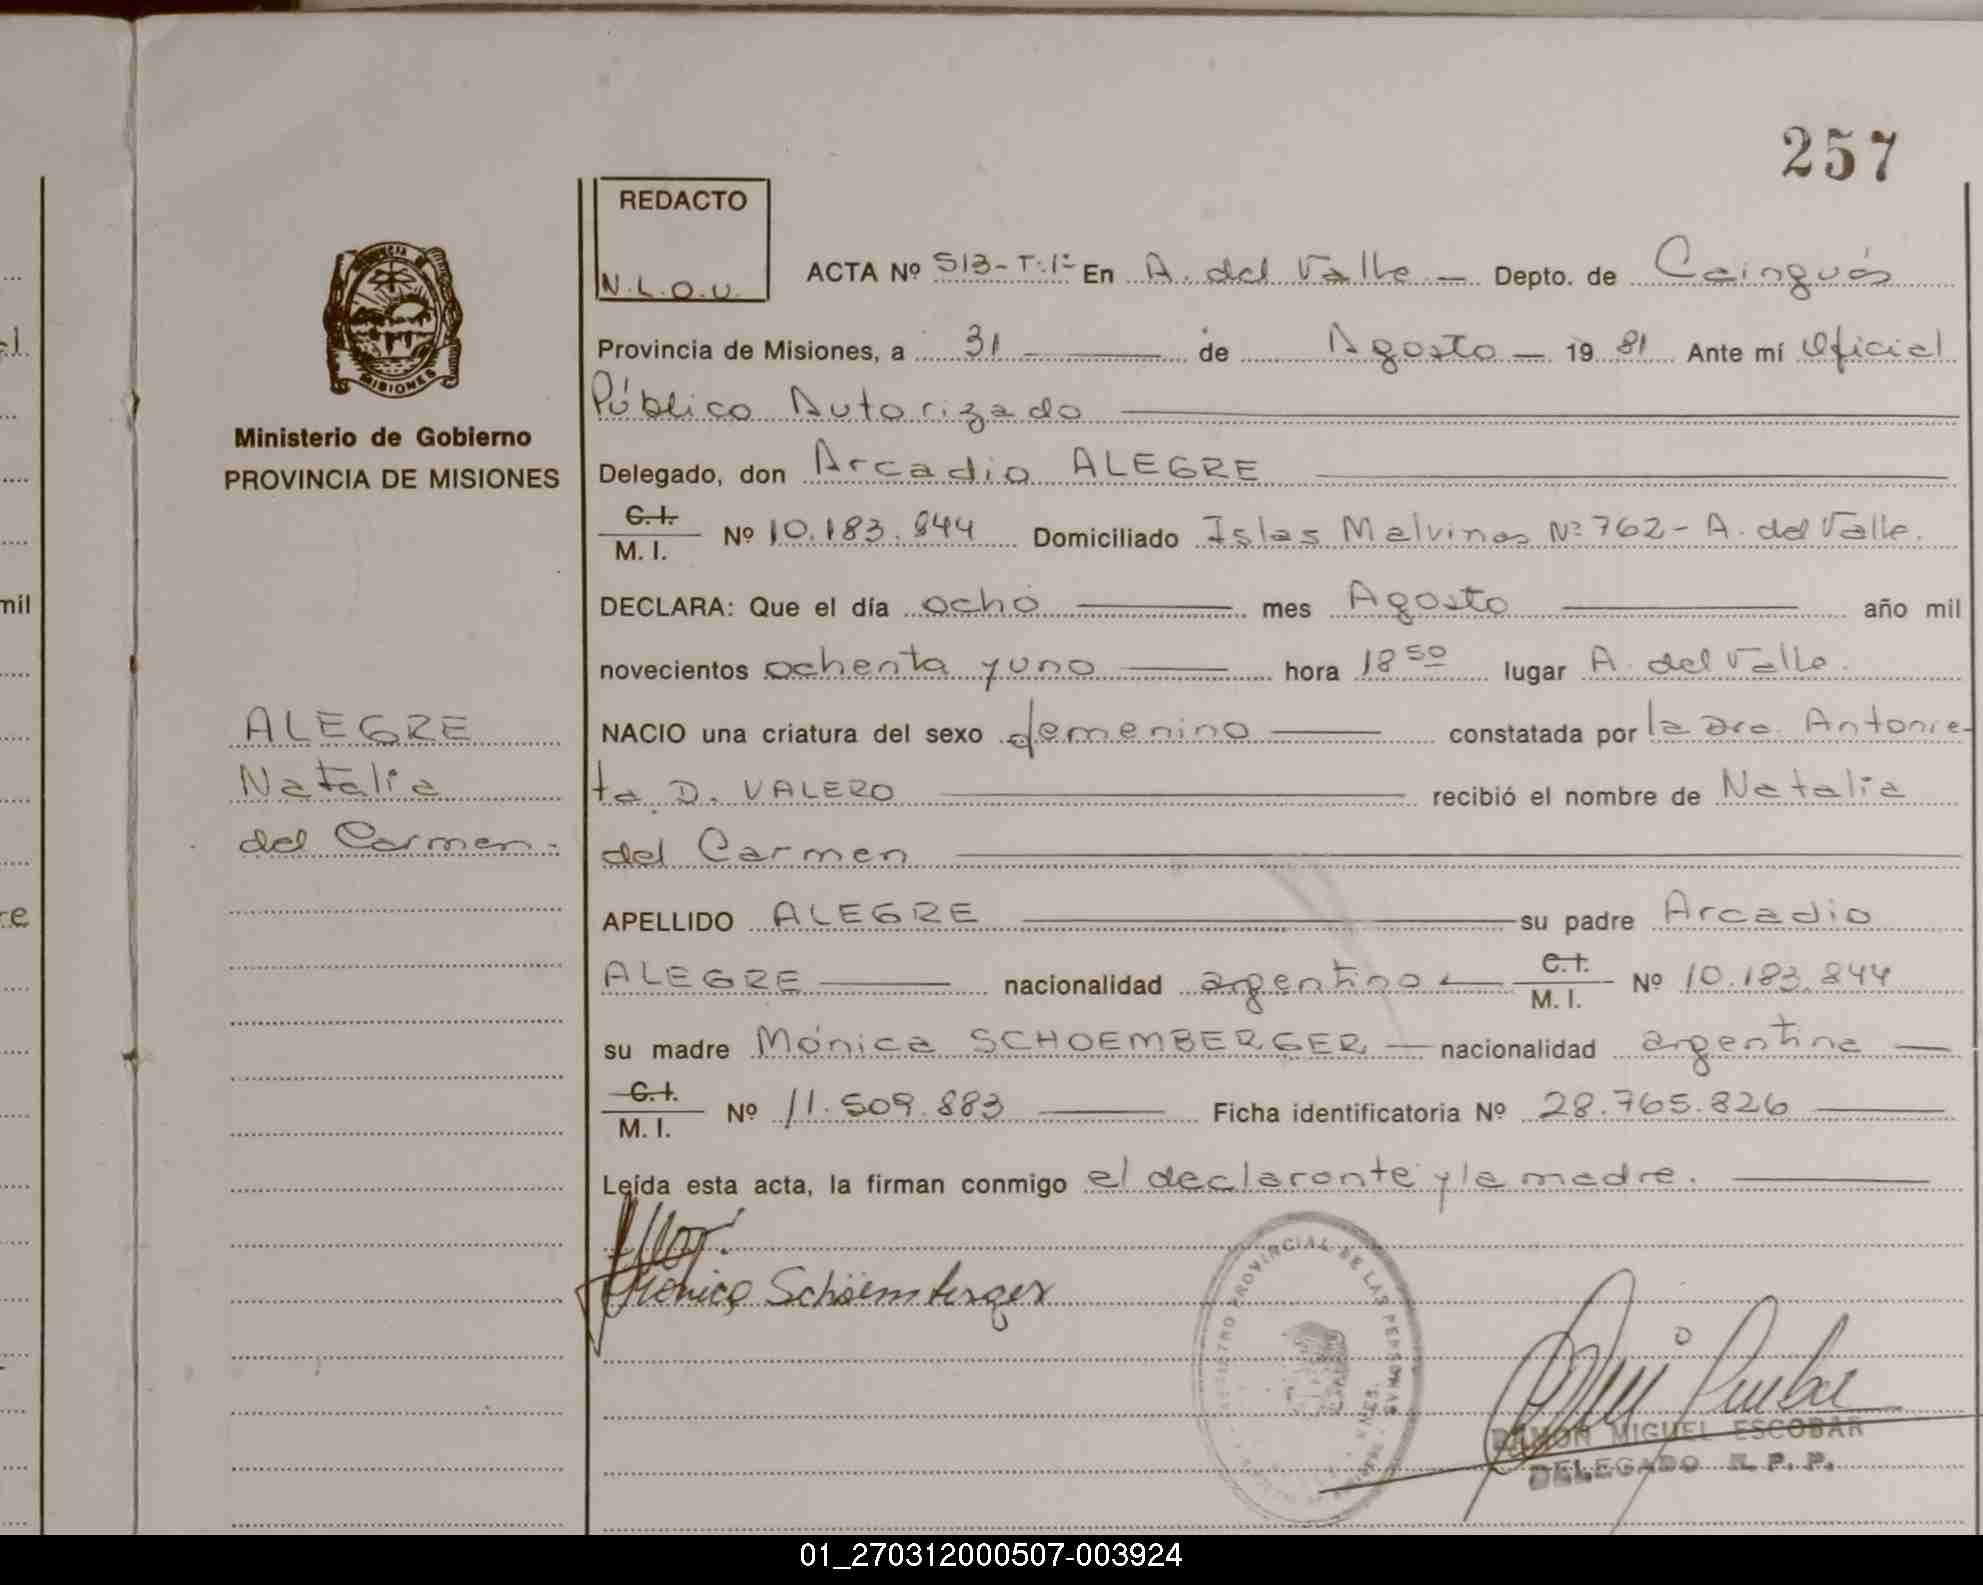 257
REDACTO
N.L.O.U.
ACTA Nº 513-T.1º En A. del Valle Depto. de Cainguás
Provincia de Misiones, a 31 de Agosto 19 81 Ante mí Oficial
Público Autorizado
MISIONES
Ministerio de Gobierno
PROVINCIA DE MISIONES
Delegado, don Arcadio ALEGRE
C.I.
M.I. Nº 10.183.844 Domiciliado Islas Malvinas Nº 762 - A. del Valle.
mil
DECLARA: Que el día ocho mes Agosto año mil
novecientos ochenta y uno hora 18 50 lugar A. del Valle.
ALEGRE
Natalia
del Carmen.
NACIO una criatura del sexo femenino constatada por la Dra. Antonie-
ta D. VALERO recibió el nombre de Natalia
del Carmen
APELLIDO ALEGRE su padre Arcadio
ALEGRE nacionalidad argentino C.I. M.I. Nº 10.183.844
su madre Mónica SCHOEMBERGER nacionalidad argentina
C.I.
M.I. Nº 11.509.883 Ficha identificatoria Nº 28.765.826
Leída esta acta, la firman conmigo el declarante y la madre.
Mónica Schoemberger
REGISTRO PROVINCIAL DE LAS PERSONAS
RAMON MIGUEL ESCOBAR
DELEGADO R. P. P.
01_270312000507-003924